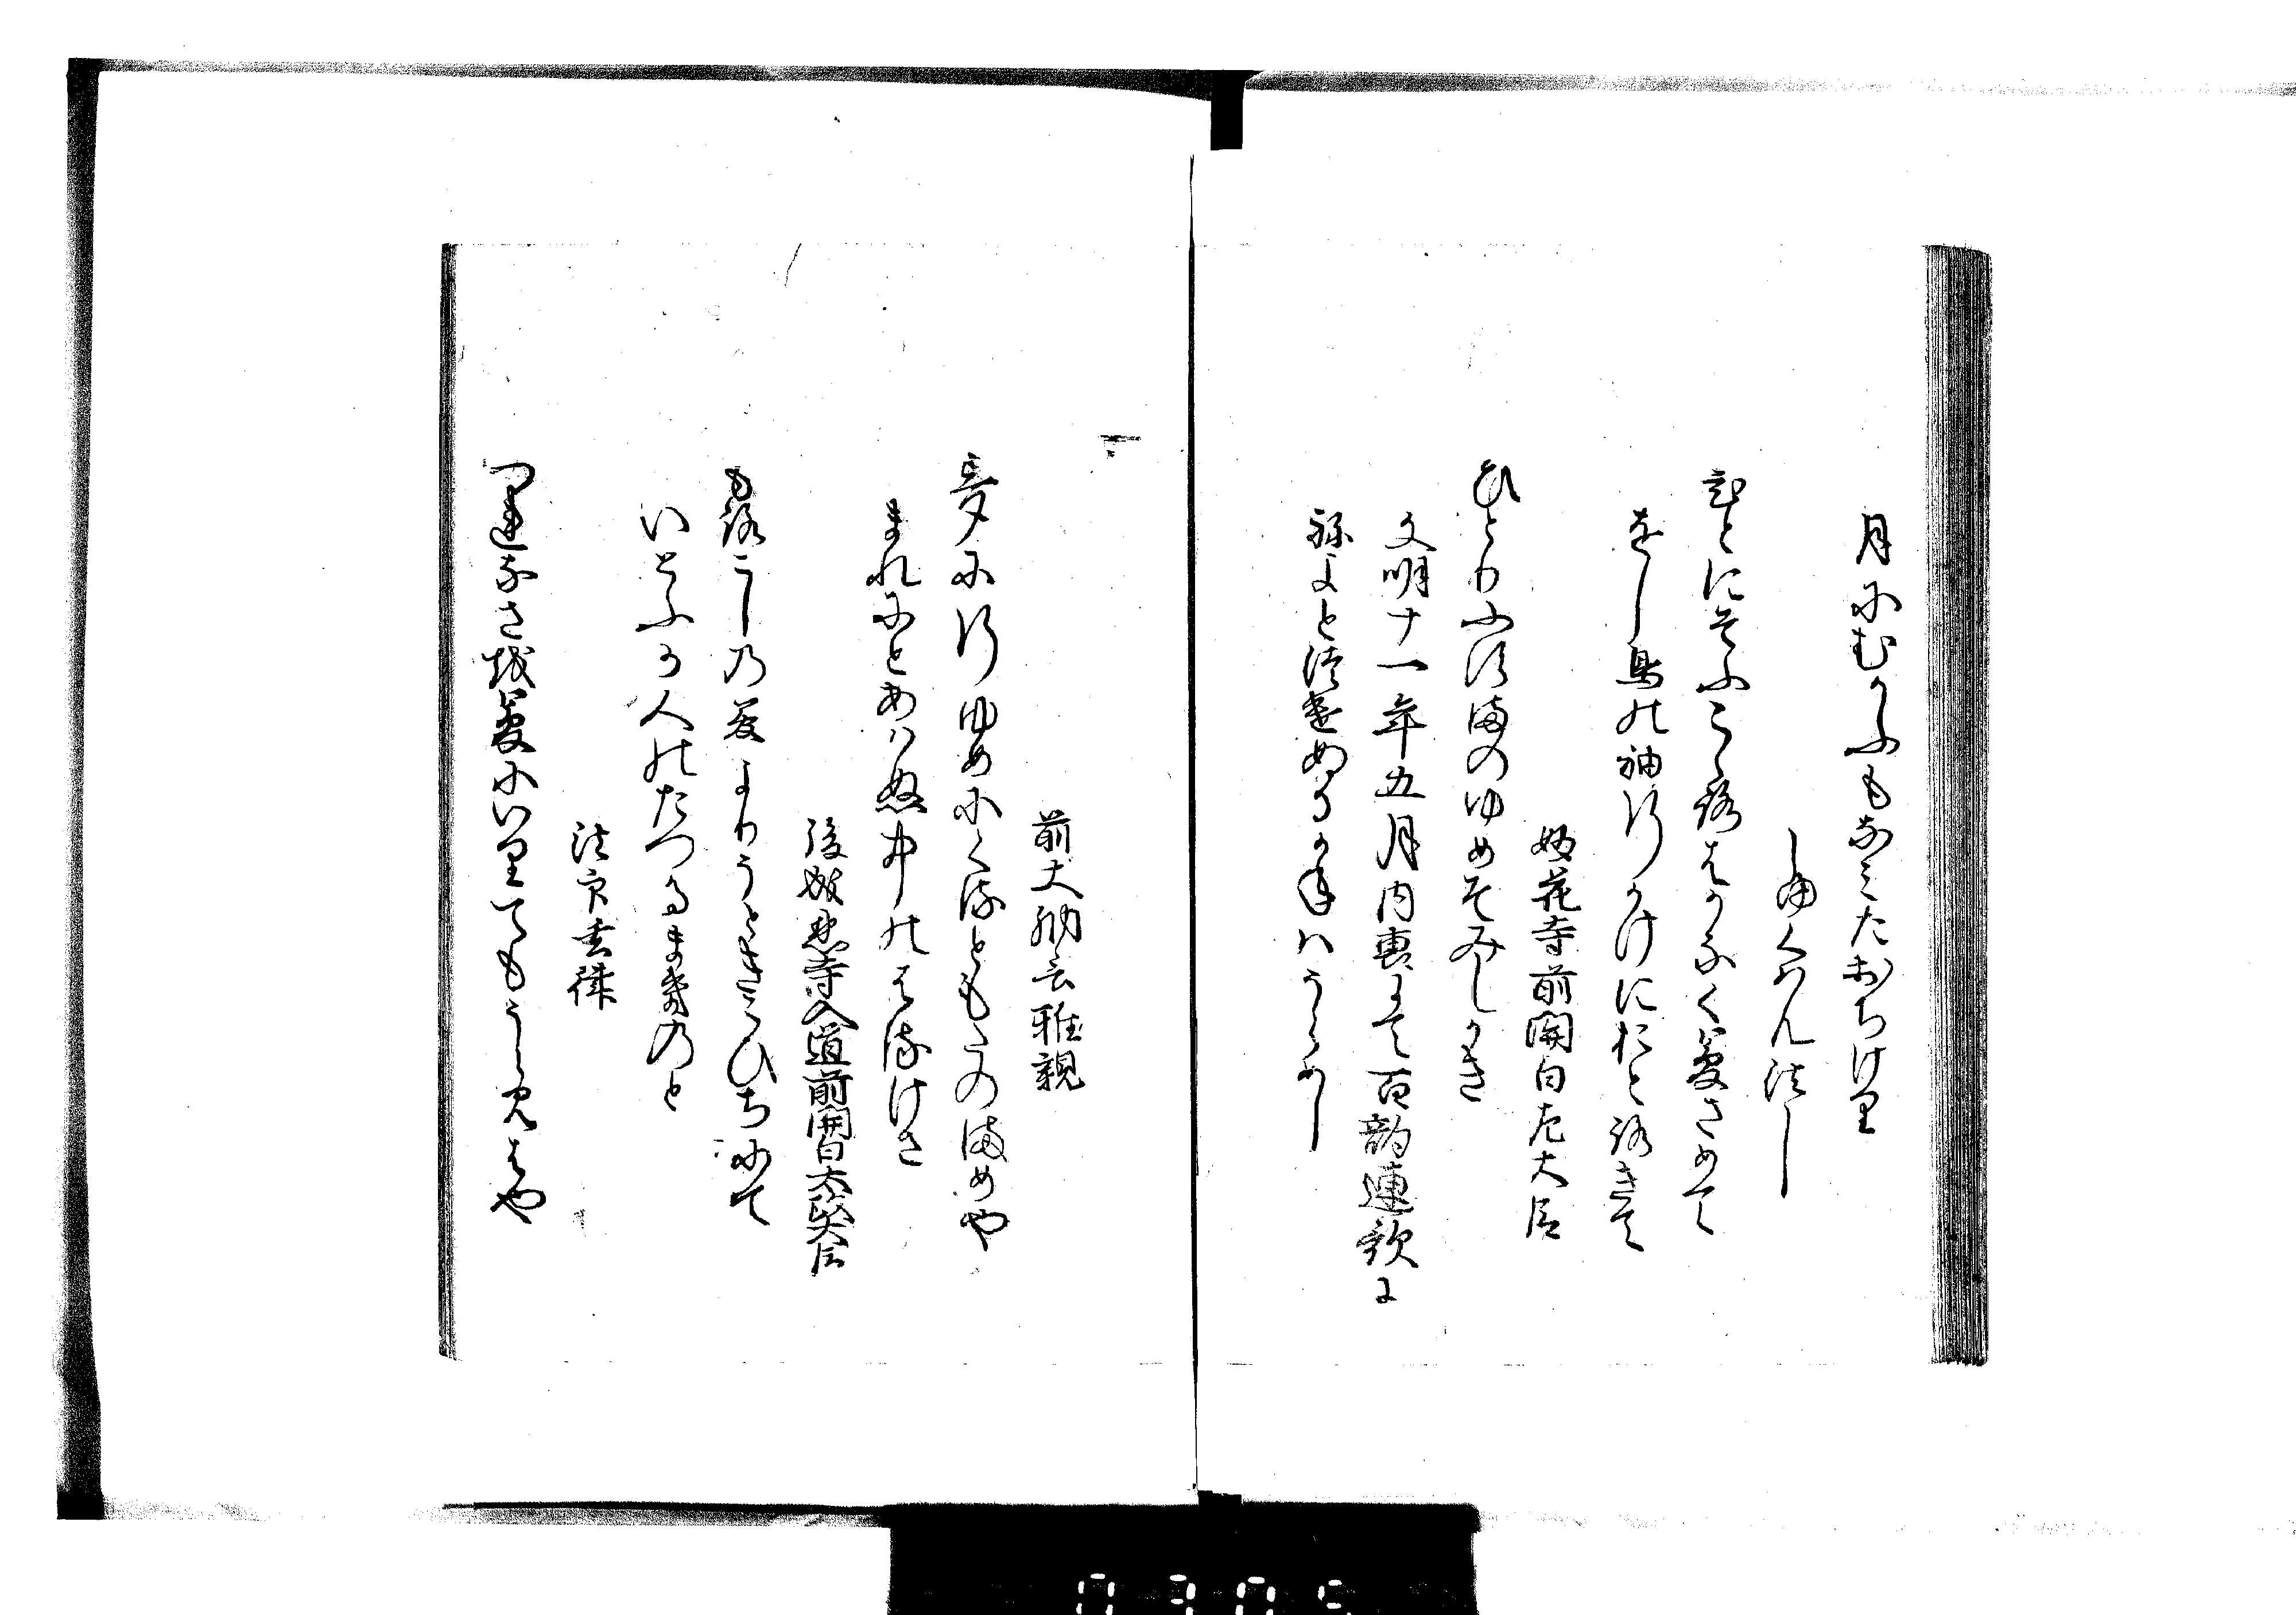 月にむかふもなみたおちけり
しゆくわん法し
むとにそふこゝろはかなく夢さめて
をし鳥の袖かけにおとろきて
妙花寺前関白左大臣
ひとりふすまのゆめそみしかき
文明十一年五月内裏にて百韻連歌に
ねよとつけぬるかねはうらめし
前大納言雅親
夢に行ゆめにくるともたのまめや
まれにとあはぬ中のはるけさ
後成恩寺入道前関白太政大臣
もろこしの夢よりうときこひちにて
いとふか人のたつるまきのと
法印玄
つれなさを夢にいりてもうらみはや
0305